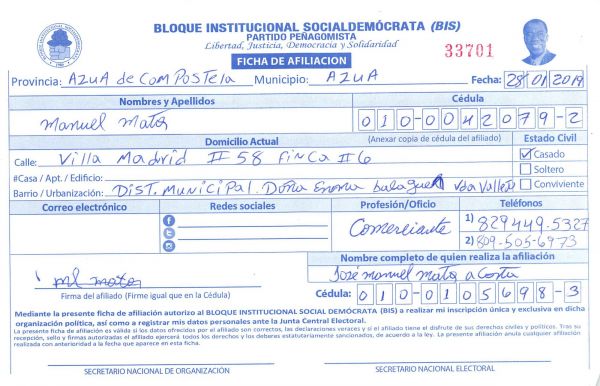 BLOQUE INSTITUCIONAL SOCIALDEMÓCRATA (BIS)
PARTIDO PEÑAGOMISTA
Libertad, Justicia, Democracia y Solidaridad
FICHA DE AFILIACION
33701
Provincia: AZUA de COMPOSTELA Municipio: AZUA Fecha: 28/01/2019
Nombres y Apellidos Cédula
Manuel Matos 010-0042079-2
Domicilio Actual (Anexar copia de cédula del afiliado) Estado Civil
Calle: Villa Madrid #58 Finca #6 Casado
#Casa / Apt. / Edificio: Soltero
Barrio / Urbanización: Dist. Municipal. Doña Emma balaguer Conviviente
Correo electrónico Redes sociales Profesión/Oficio Teléfonos
Comerciante 1) 829449-5327
2) 809-505-6973
Nombre completo de quien realiza la afiliación
ml matos José manuel Matos acosta
Firma del afiliado (Firme igual que en la Cédula) Cédula: 010-0105698-3
Mediante la presente ficha de afiliación autorizo al BLOQUE INSTITUCIONAL SOCIAL DEMÓCRATA (BIS) a realizar mi inscripción única y exclusiva en dicha
organización política, así como a registrar mis datos personales ante la Junta Central Electoral.
La presente ficha de afiliación es válida si los datos ofrecidos por el afiliado son correctos, las declaraciones veraces y si el afiliado tiene el disfrute de sus derechos civiles y políticos. Tras su
recepción, sello y firmas autorizadas el afiliado ejercerá todos los derechos y los deberes estatutariamente sancionados, de acuerdo a la ley. La presente afiliación anula cualquier afiliación
realizada con anterioridad a la fecha que aparece en esta ficha.
SECRETARIO NACIONAL DE ORGANIZACIÓN SECRETARIO NACIONAL ELECTORAL